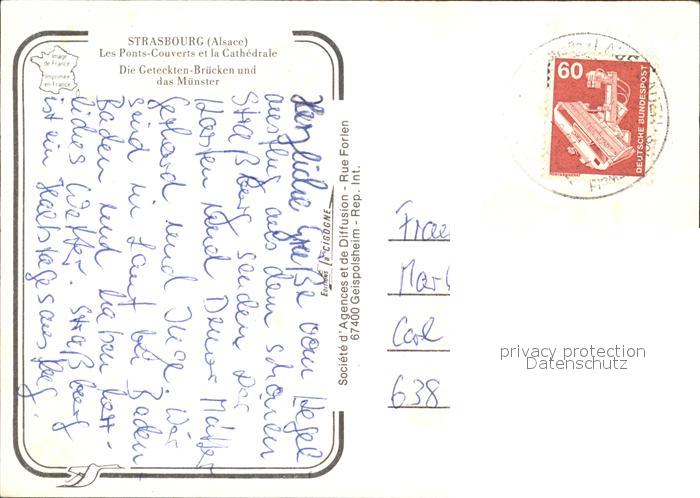 STRASBOURG (Alsace)
Les Ponts-Couverts et la Cathédrale
Die Geteckten-Brücken und
das Münster
Image
de France
Imprimée
en France
Herzliche Grüße vom Kegel-
ausflug aus dem schönen
Straßburg senden Dir
Karsten und Deine Mutter
Gerhard und Inge. Wir
sind in Lauf bei Baden-
Baden und haben herr-
liches Wetter. Straßburg
ist ein Halbtagesausflug.
EDITIONS LA CIGOGNE
Société d'Agences et de Diffusion - Rue Forlen
67400 Geispolsheim - Rep. Int.
60
DEUTSCHE BUNDESPOST
Frau
Mar
Carl
638
privacy protection
Datenschutz